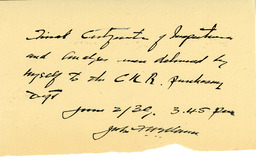 Final Certificate of Inspection
and Analysis were delivered by
myself to the C.N.R. Purchasing
Dept
June 2/30, 3.45 pm
John